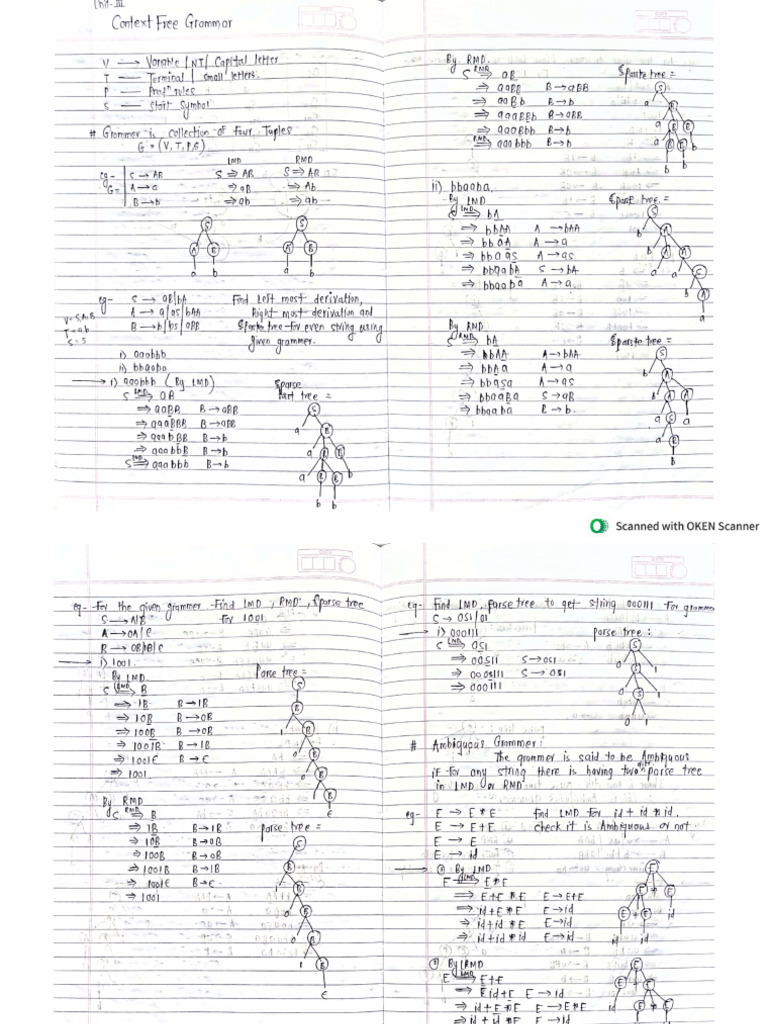 Unit-III
Context Free Grammar
V → Variable / NT / Capital letter
T → Terminal / small letters.
P → Prodⁿ rules
S → Start Symbol
# Grammer is collection of four Tuples
G = (V, T, P, S)
LMD RMD
eg- S → AB S ⇒ AB S ⇒ AB
G = A → a ⇒ aB ⇒ Ab
B → b ⇒ ab ⇒ ab
S S
A B A B
a b a b
eg- S → aB/bA Find Left most derivation,
A → a/as/bAA Right most derivation and
B → b/bs/aBB &parse tree for even string using
given grammer.
V = S,A,B
T = a,b
S = S
i) aaabbb
ii) bbaaba
→ i) aaabbb (By LMD) &parse
S LMD⇒ aB tree =
⇒ aaBB B → aBB
⇒ aaaBBB B → aBB
⇒ aaabBB B → b
⇒ aaabbB B → b
S LMD⇒ aaabbb B → b
By RMD.
S RMD⇒ aB &parse tree =
⇒ aaBB B → aBB
⇒ aaBb B → b
⇒ aaaBBb B → aBB
⇒ aaaBbb B → b
RMD⇒ aaabbb B → b
ii) bbaaba.
By LMD &parse tree =
S LMD⇒ bA
⇒ bbAA A → bAA
⇒ bbaA A → a
⇒ bbaas A → as
⇒ bbaabA S → bA
⇒ bbaaba A → a
By RMD
S RMD⇒ bA &parste tree =
⇒ bbAA A → bAA
⇒ bbAa A → a
⇒ bbasa A → as
⇒ bbaaBa S → aB
⇒ bbaaba B → b.
Scanned with OKEN Scanner
eg- For the given grammer. Find LMD, RMD, &parse tree
S → A1B for 1001
A → 0A/ε
B → 0B/1B/ε
→ i) 1001
By LMD Parse tree =
S LMD⇒ B
⇒ 1B B → 1B
⇒ 10B B → 0B
⇒ 100B B → 0B
⇒ 1001B B → 1B
⇒ 1001ε B → ε
⇒ 1001
By RMD
S RMD⇒ B parse tree =
⇒ 1B B → 1B
⇒ 10B B → 0B
⇒ 100B B → 0B
⇒ 1001B B → 1B
⇒ 1001ε B → ε
⇒ 1001
eg- Find LMD, parse tree to get string 000111 for grammer
S → 0S1/01
→ i) 000111 parse tree :
S LMD⇒ 0S1
⇒ 00S11 S → 0S1
⇒ 000S111 S → 0S1
⇒ 000111
# Ambiguous Grammer:
The grammer is said to be Ambiguous
if for any string there is having two parse tree
in LMD or RMD
eg- E → E * E find LMD for id + id * id.
E → E + E check it is Ambiguous or not
E → E
E → id
→ ① By LMD
E LMD⇒ E * E
⇒ E + E * E E → E + E
⇒ id + E * E E → id
⇒ id + id * E E → id
⇒ id + id * id E → id
② By RMD
E LMD⇒ E + E
⇒ E id + E E → id
⇒ id + E * E E → E * E
⇒ id + id * E E → id